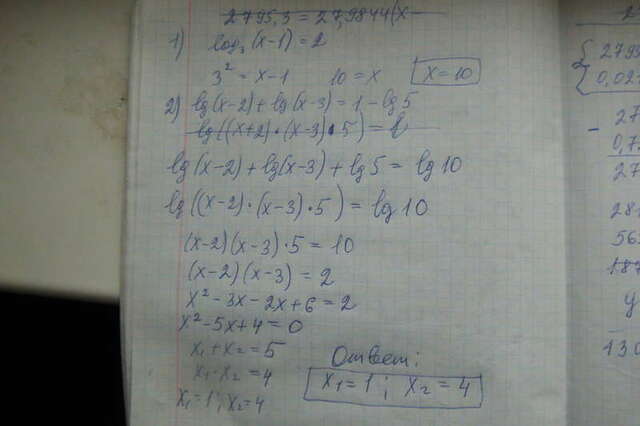 2795,3 = 27,9844(x
1) log₃(x-1)=2
3² = x-1 10=x x=10
2) lg(x-2)+lg(x-3)=1-lg5
lg((x+2)·(x-3)·5)=
lg(x-2)+lg(x-3)+lg5=lg10
lg((x-2)·(x-3)·5)=lg10
(x-2)(x-3)·5=10
(x-2)(x-3)=2
x²-3x-2x+6=2
x²-5x+4=0
x₁+x₂=5
x₁·x₂=4
x₁=1; x₂=4
Ответ:
x₁=1; x₂=4
0,02
27
0,7
27
28
56
187
y
130